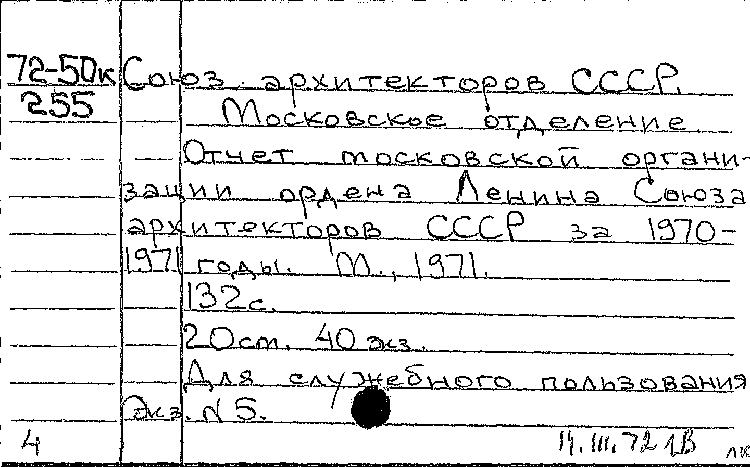 72-50к Союз архитекторов СССР.
255 Московское отделение
Отчет московской органи-
зации ордена Ленина Союза
архитекторов СССР за 1970-
1971 годы. М., 1971.
132 с.
20 см. 40 экз.
Для служебного пользования
Экз. N 5.
4